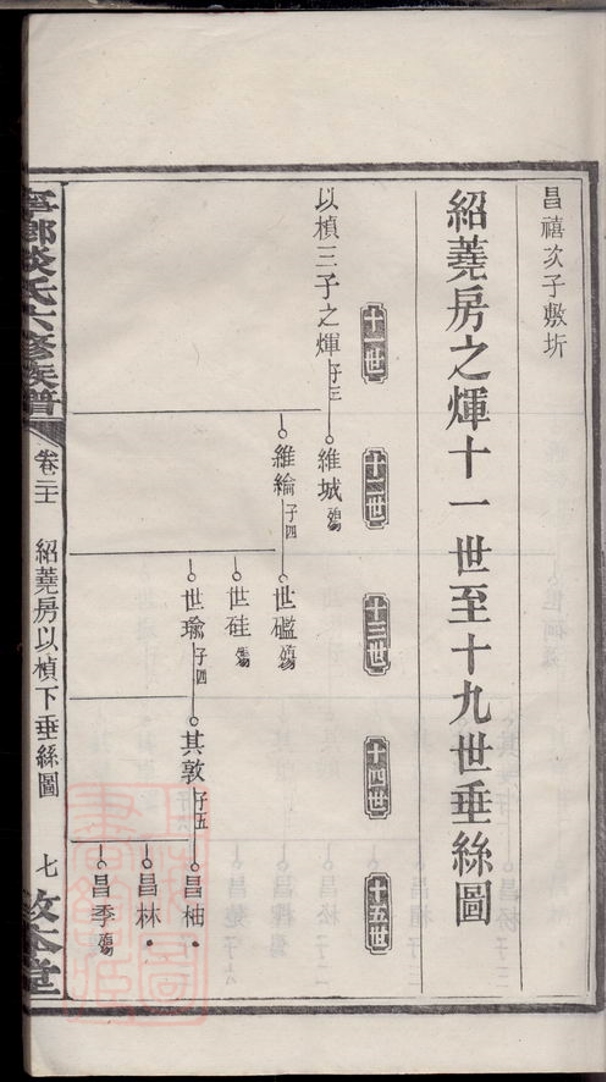 昌禧次子敷圻
紹蕘房之煇十一世至十九世垂絲圖
十一世
十二世
十三世
十四世
十五世
以楨三子之煇 子三
維城 殤
維綸 子四
世礛 殤
世硅 殤
世瑜 子四
其敦 子五
昌柚
昌林
昌季 殤
寧鄉談氏六修族譜
卷二十 紹蕘房以楨下垂絲圖 七 敦本堂